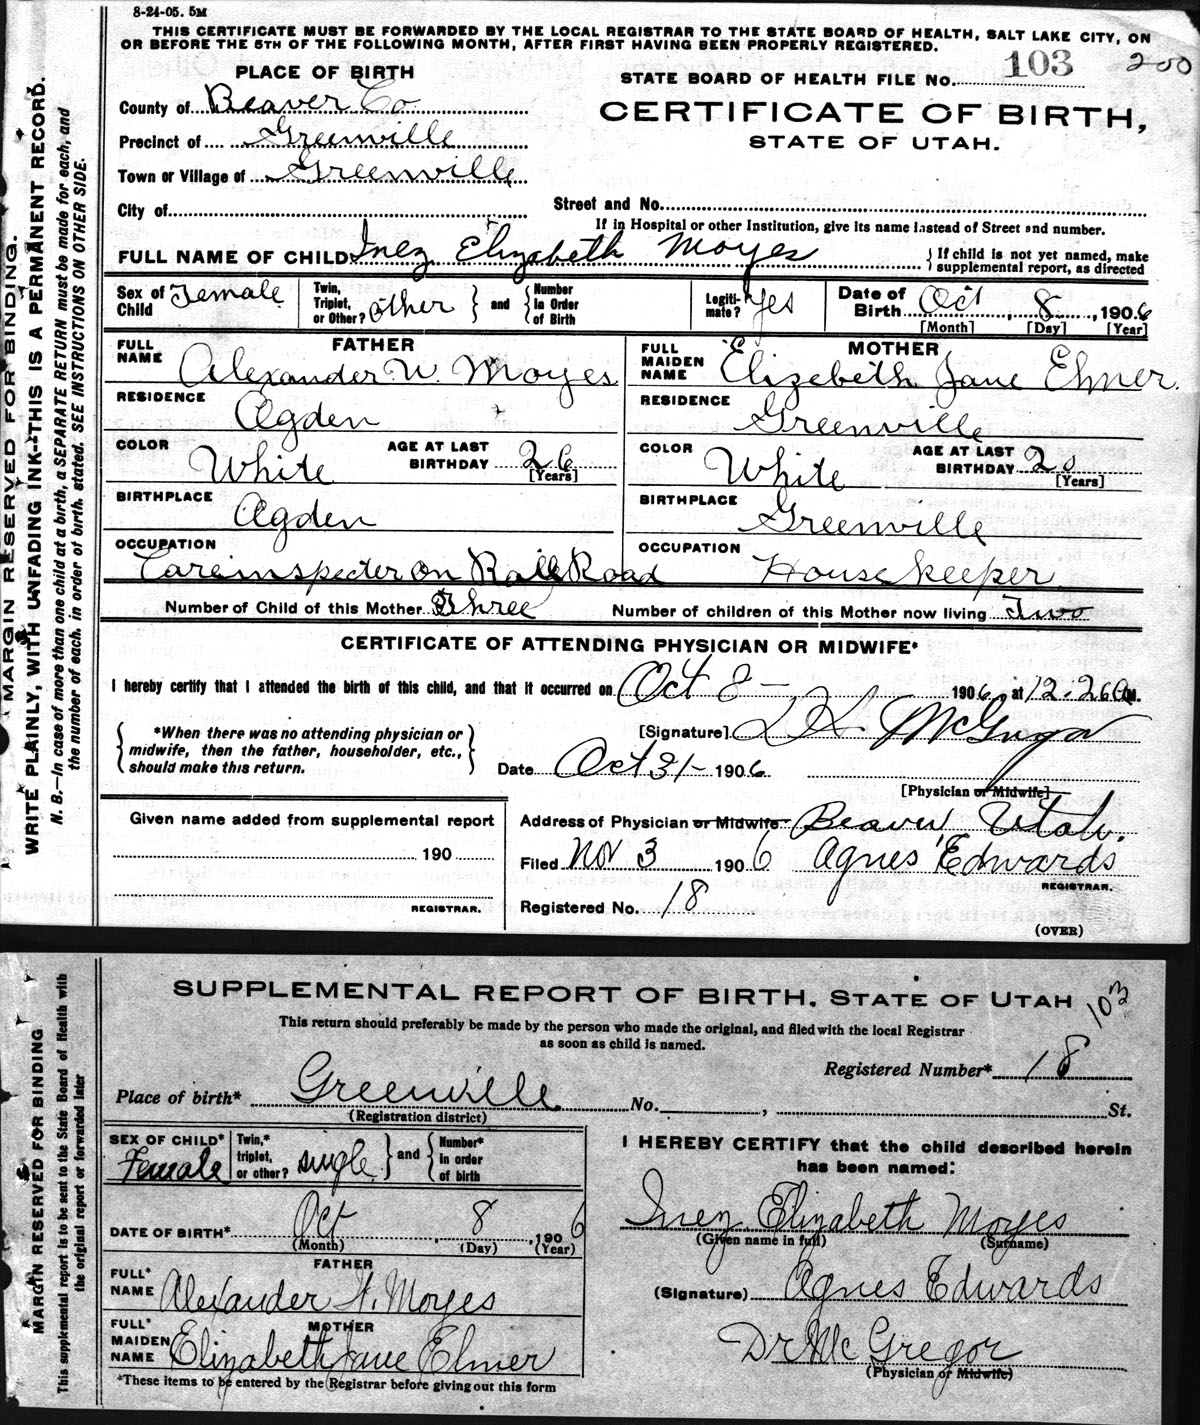 8-24-05. 5M
THIS CERTIFICATE MUST BE FORWARDED BY THE LOCAL REGISTRAR TO THE STATE BOARD OF HEALTH, SALT LAKE CITY, ON
OR BEFORE THE 5TH OF THE FOLLOWING MONTH, AFTER FIRST HAVING BEEN PROPERLY REGISTERED.
PLACE OF BIRTH
STATE BOARD OF HEALTH FILE No. 103 200
County of Beaver Co
CERTIFICATE OF BIRTH,
Precinct of Greenville
STATE OF UTAH.
Town or Village of Greenville
City of
Street and No.
If in Hospital or other Institution, give its name instead of Street and number.
FULL NAME OF CHILD Inez Elizabeth Moyes
{If child is not yet named, make
supplemental report, as directed
Sex of Child Female
Twin, Triplet, or Other? other } and { Number in Order of Birth
Legitimate? Yes
Date of Birth Oct 8, 1906
[Month] [Day] [Year]
FATHER
FULL NAME Alexander W. Moyes
RESIDENCE Ogden
COLOR White AGE AT LAST BIRTHDAY 26 [Years]
BIRTHPLACE Ogden
OCCUPATION Careinspecter on Rail Road
MOTHER
FULL MAIDEN NAME Elizebeth Jane Elmer.
RESIDENCE Greenville
COLOR White AGE AT LAST BIRTHDAY 20 [Years]
BIRTHPLACE Greenville
OCCUPATION House keeper
Number of Child of this Mother Three Number of children of this Mother now living Two
CERTIFICATE OF ATTENDING PHYSICIAN OR MIDWIFE*
I hereby certify that I attended the birth of this child, and that it occurred on Oct 8- 1906, at 12.26 a M.
{*When there was no attending physician or
midwife, then the father, householder, etc.,
should make this return.}
[Signature] McGregor
Date Oct 31- 1906
[Physician or Midwife]
Given name added from supplemental report
190
REGISTRAR.
Address of Physician or Midwife Beaver Utah.
Filed Nov 3 1906 Agnes Edwards
REGISTRAR.
Registered No. 18
(OVER)
MARGIN RESERVED FOR BINDING.
WRITE PLAINLY, WITH UNFADING INK--THIS IS A PERMANENT RECORD.
N. B.—In case of more than one child at a birth, a SEPARATE RETURN must be made for each, and
the number of each, in order of birth, stated. SEE INSTRUCTIONS ON OTHER SIDE.
SUPPLEMENTAL REPORT OF BIRTH, STATE OF UTAH 103
This return should preferably be made by the person who made the original, and filed with the local Registrar
as soon as child is named.
Registered Number* 18
Place of birth* Greenville No. , St.
(Registration district)
SEX OF CHILD* Female
Twin,* triplet, or other? single } and { Number* in order of birth
DATE OF BIRTH* Oct 8, 1906
(Month) (Day) (Year)
FATHER
FULL* NAME Alexander W. Moyes
MOTHER
FULL* MAIDEN NAME Elizabeth Jane Elmer
*These items to be entered by the Registrar before giving out this form
I HEREBY CERTIFY that the child described herein
has been named:
Inez Elizabeth Moyes
(Given name in full) (Surname)
(Signature) Agnes Edwards
Dr Mc Gregor
(Physician or Midwife)
MARGIN RESERVED FOR BINDING
This supplemental report is to be sent to the State Board of Health with
the original report or forwarded later